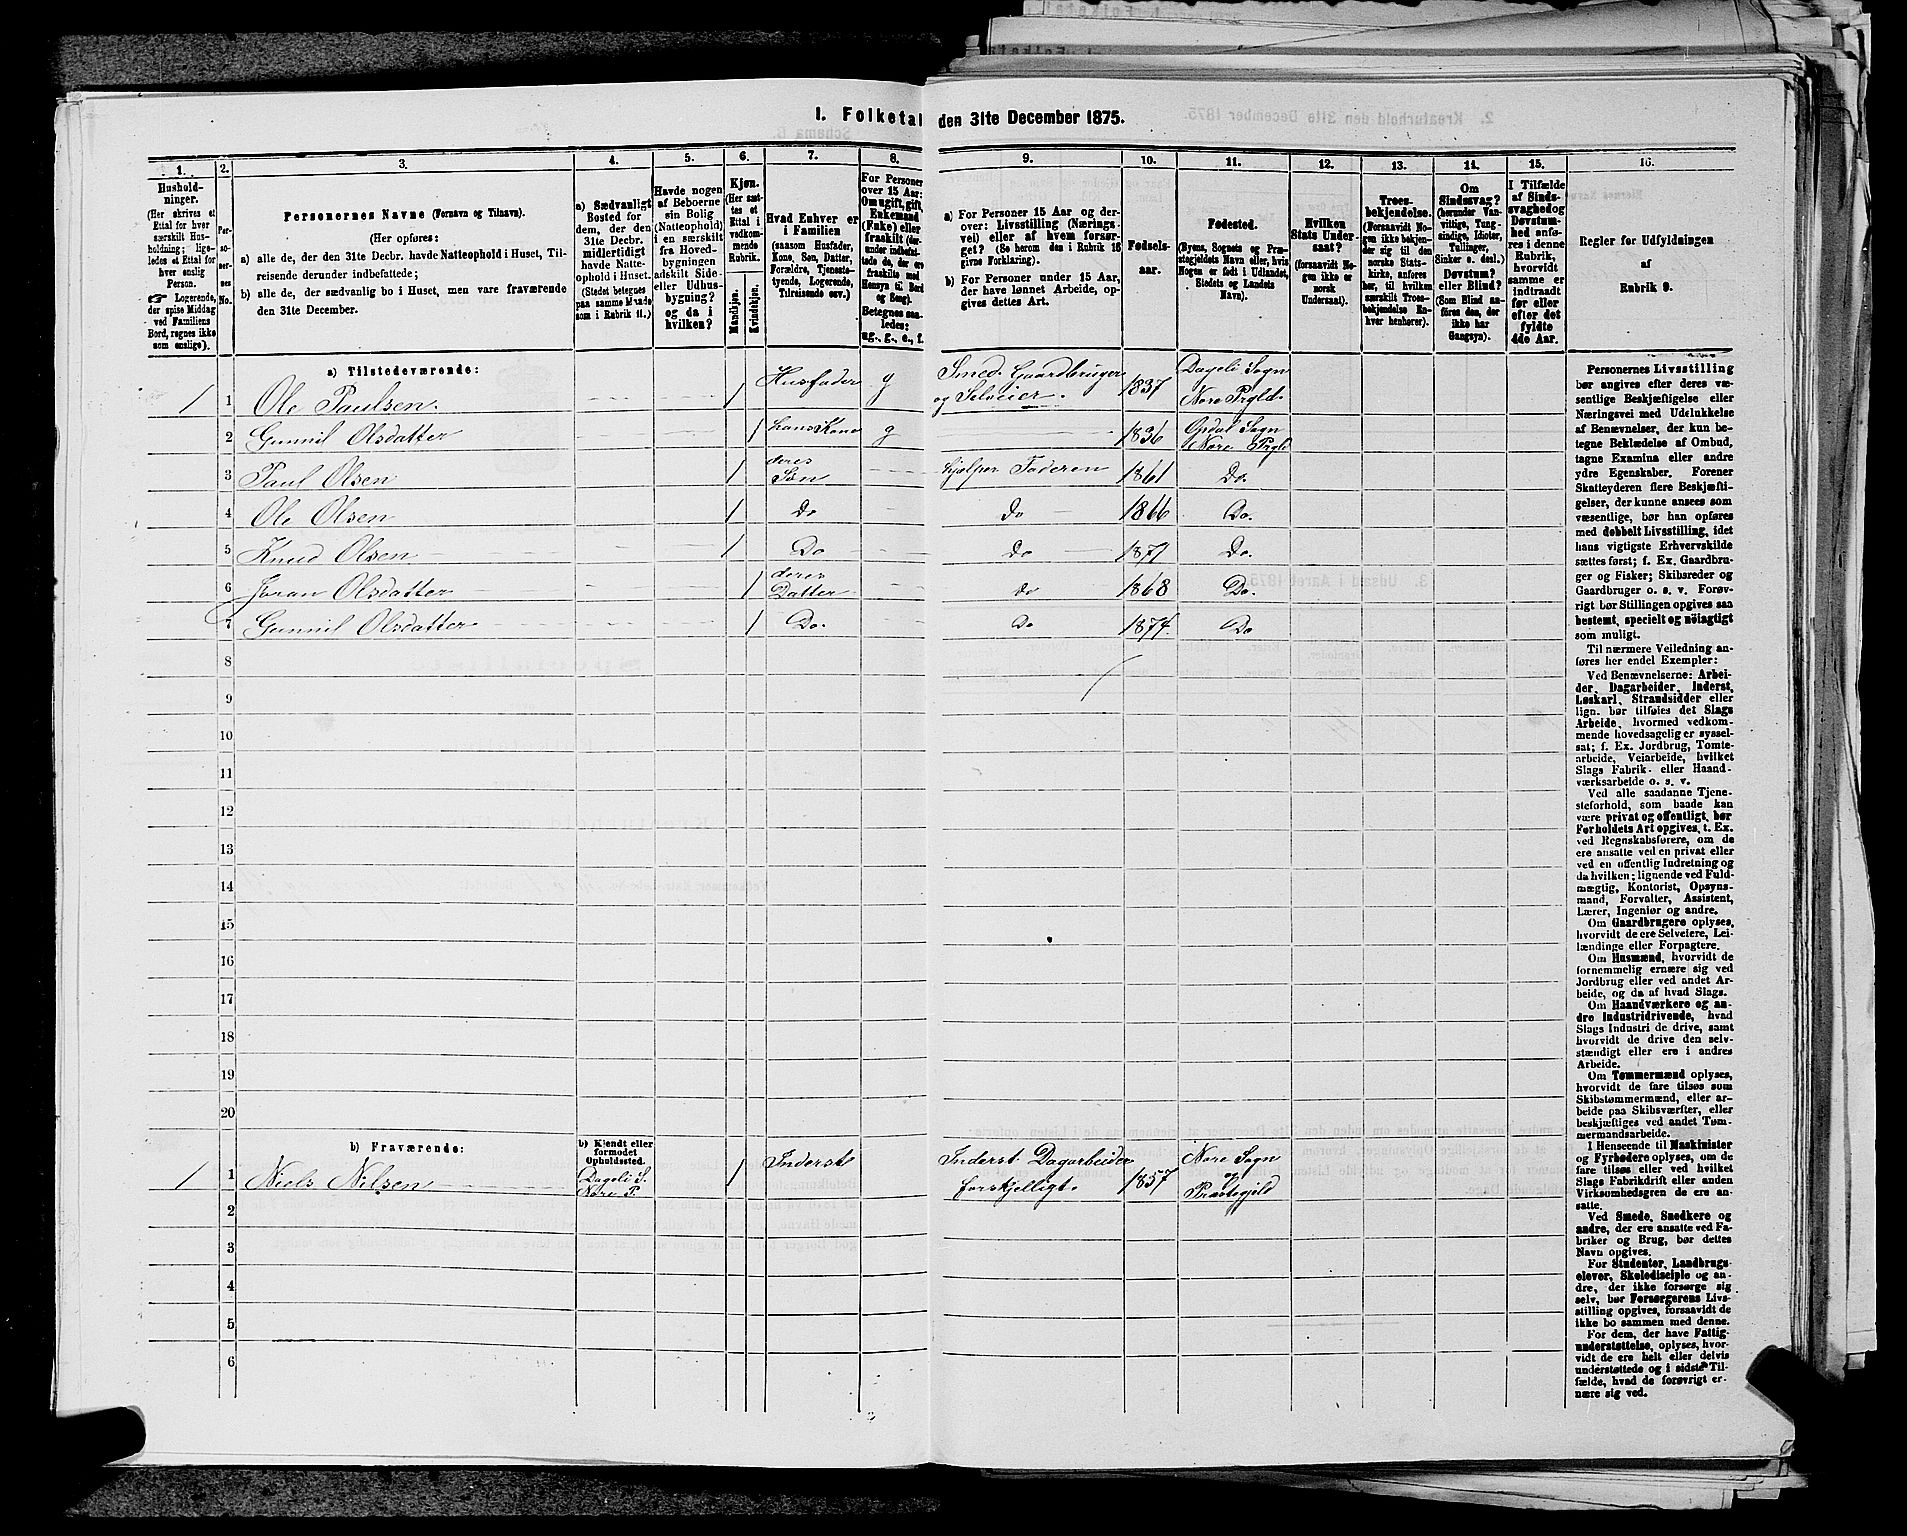 I. Folketal den 31te December 1875.
1.
2.
3.
4.
5.
6.
7.
8.
9.
10.
11.
12.
13.
14.
15.
16.
Hushold-
ninger.
(Her skrives et
Ettal for hver
særskilt Hus-
holdning; lige-
ledes et Ettal for
hver enslig
Person.
☞ Logerende,
der spise Middag
ved Familiens
Bord, regnes ikke
som enslige).
Per-
so-
ner-
nes
No.
Personernes Navne (Fornavn og Tilnavn).
(Her opføres:
a) alle de, der den 31te Decbr. havde Natteophold i Huset, Til-
reisende derunder indbefattede;
b) alle de, der sædvanlig bo i Huset, men vare fraværende
den 31te December.
a) Sædvanligt
Bosted for
dem, der den
31te Decbr.
midlertidigt
havde Natte-
ophold i Huset.
(Stedet betegnes
paa samme Maade
som i Rubrik 11.)
Havde nogen
af Beboerne
sin Bolig
(Natteophold)
i en særskilt
fra Hoved-
bygningen
adskilt Side-
eller Udhus-
bygning?
og da i
hvilken?
Kjøn.
(Her sæt-
tes et
Ettal i
vedkom-
mende
Rubrik.
Mandkjøn.
Kvindekjøn.
Hvad Enhver er
i Familien
(saasom Husfader,
Kone, Søn, Datter,
Forældre, Tjeneste-
tyende, Logerende,
Tilreisende osv.)
For Personer
over 15 Aar:
Om ugift, gift,
Enkemand
(Enke) eller
fraskilt (der-
under indbefat-
tede de, der ere
fraskilte med
Hensyn til Bord
og Seng).
Betegnes saa-
ledes:
ug., g., e., f.
a) For Personer 15 Aar og der-
over: Livsstilling (Nærings-
vei) eller af hvem forsør-
get? (Se herom den i Rubrik 16
givne Forklaring).
b) For Personer under 15 Aar,
der have lønnet Arbeide, op-
gives dettes Art.
Fødsels-
aar.
Fødested.
(Byens, Sognets og Præ-
stegjeldets Navn eller, hvis
Nogen er født i Udlandet,
Stedets og Landets
Navn).
Hvilken
Stats Under-
saat?
(forsaavidt No-
gen ikke er
norsk
Undersaat).
Troes-
bekjendelse.
(Forsaavidt No-
gen ikke bekjen-
der sig til den
norske Stats-
kirke, anføres
her, til hvilken
særskilt Troes-
bekjendelse En-
hver henhører).
Om
Sindssvag?
(herunder Van-
vittige, Tung-
sindige, Idioter,
Tullinger,
Sinker o. desl.)
Døvstum?
eller Blind?
(Som Blind an-
føres den, der
ikke har
Gangsyn).
I Tilfælde
af Sinds-
svaghed og
Døvstum-
hed anfø-
res i denne
Rubrik,
hvorvidt
samme er
indtraadt
før eller
efter det
fyldte
4de Aar.
Regler for Udfyldningen
af
Rubrik 9.
a) Tilstedeværende:
1 1 Ole Paulsen 1 Husfader g Smed. Gaardbruger og Selveier. 1837 Dageli Sogn Nore Prgld.
2 Gunnil Olsdatter 1 hans Kone g 1836 Opdal Sogn Nore Prgld
3 Paul Olsen 1 deres Søn hjelper Faderen 1861 Do.
4 Ole Olsen 1 do do 1866 Do.
5 Knud Olsen 1 Do Do 1871 Do.
6 Joran Olsdatter 1 deres Datter do 1868 Do.
7 Gunnil Olsdatter 1 Do. Do 1874. Do
8
9
10
11
12
13
14
15
16
17
18
19
20
b) Fraværende:
b) Kjendt eller
formodet
Opholdssted.
1 1 Niels Nilsen Dageli S. Nore P. 1 Inderst Inderst. Dagarbeider forskjelligt. 1857 Nore Sogn og Præstegjeld
2
3
4
5
6
Personernes Livsstilling
bør angives efter deres væ-
sentlige Beskjæftigelse eller
Næringsvei med Udelukkelse
af Benævnelser, der kun be-
tegne Beklædelse af Ombud,
tagne Examina eller andre
ydre Egenskaber. Forener
Skatteyderen flere Beskjæfti-
gelser, der kunne ansees som
væsentlige, bør han opføres
med dobbelt Livsstilling, idet
hans vigtigste Erhvervskilde
sættes først; f. Ex. Gaardbru-
ger og Fisker; Skibsreder og
Gaardbruger o. s. v. Forøv-
rigt bør Stillingen opgives saa
bestemt, specielt og nøiagtigt
som muligt.
Til nærmere Veiledning an-
føres her endel Exempler:
Ved Benævnelserne: Arbei-
der, Dagarbeider, Inderst,
Løskarl, Strandsidder eller
lign. bør tilføies det Slags
Arbeide, hvormed vedkom-
mende hovedsagelig er syssel-
sat; f. Ex. Jordbrug, Tomte-
arbeide, Veiarbeide, hvilket
Slags Fabrik- eller Haand-
værksarbeide o. s. v.
Ved alle saadanne Tjene-
steforhold, som baade kan
være privat og offentligt, bør
Forholdets Art opgives, t. Ex.
ved Regnskabsførere, om de
ere ansatte ved en privat eller
ved en offentlig Indretning og
da hvilken; lignende ved Fuld-
mægtig, Kontorist, Opsyns-
mand, Forvalter, Assistent,
Lærer, Ingeniør og andre.
Om Gaardbrugere oplyses,
hvorvidt de ere Selveiere, Lei-
lændinge eller Forpagtere.
Om Husmænd, hvorvidt de
fornemmelig ernære sig ved
Jordbrug eller ved andet Ar-
beide, og da af hvad Slags.
Om Haandværkere og an-
dre Industridrivende, hvad
Slags Industri de drive, samt
hvorvidt de drive den selv-
stændigt eller ere i andres
Arbeide.
Om Tømmermænd oplyses,
hvorvidt de fare tilsøs som
Skibstømmermænd, eller ar-
beide paa Skibsværfter, eller
beskjæftiges ved andet Tøm-
mermandsarbeide.
I Henseende til Maskinister
og Fyrbødere oplyses, om de
fare tilsøs eller ved hvilket
Slags Fabrikdrift eller anden
Virksomhedsgren de ere an-
satte.
Ved Smede, Snedkere og
andre, der ere ansatte ved Fa-
briker og Brug, bør dettes
Navn opgives.
For Studenter, Landbrugs-
elever, Skoledisciple og an-
dre, der ikke forsørge sig
selv, bør Forsørgerens Livs-
stilling opgives, forsaavidt de
ikke bo sammen med denne.
For dem, der have Fattig-
understøttelse, oplyses, hvor-
vidt de ere helt eller delvis
understøttede og i sidste Til-
fælde, hvad de forøvrigt er-
nære sig ved.